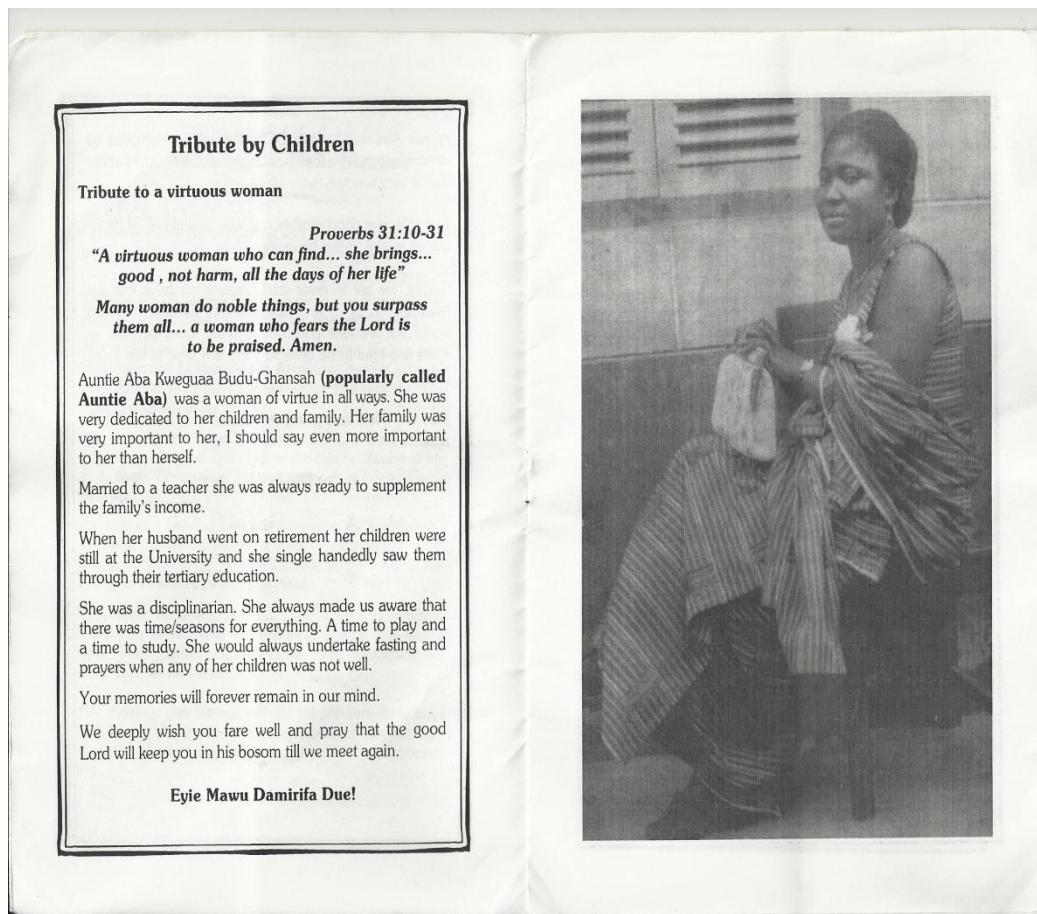 Tribute by Children
Tribute to a virtuous woman
Proverbs 31:10-31
“A virtuous woman who can find... she brings...
good , not harm, all the days of her life”
Many woman do noble things, but you surpass
them all... a woman who fears the Lord is
to be praised. Amen.
Auntie Aba Kweguaa Budu-Ghansah (popularly called
Auntie Aba) was a woman of virtue in all ways. She was
very dedicated to her children and family. Her family was
very important to her, I should say even more important
to her than herself.
Married to a teacher she was always ready to supplement
the family’s income.
When her husband went on retirement her children were
still at the University and she single handedly saw them
through their tertiary education.
She was a disciplinarian. She always made us aware that
there was time/seasons for everything. A time to play and
a time to study. She would always undertake fasting and
prayers when any of her children was not well.
Your memories will forever remain in our mind.
We deeply wish you fare well and pray that the good
Lord will keep you in his bosom till we meet again.
Eyie Mawu Damirifa Due!